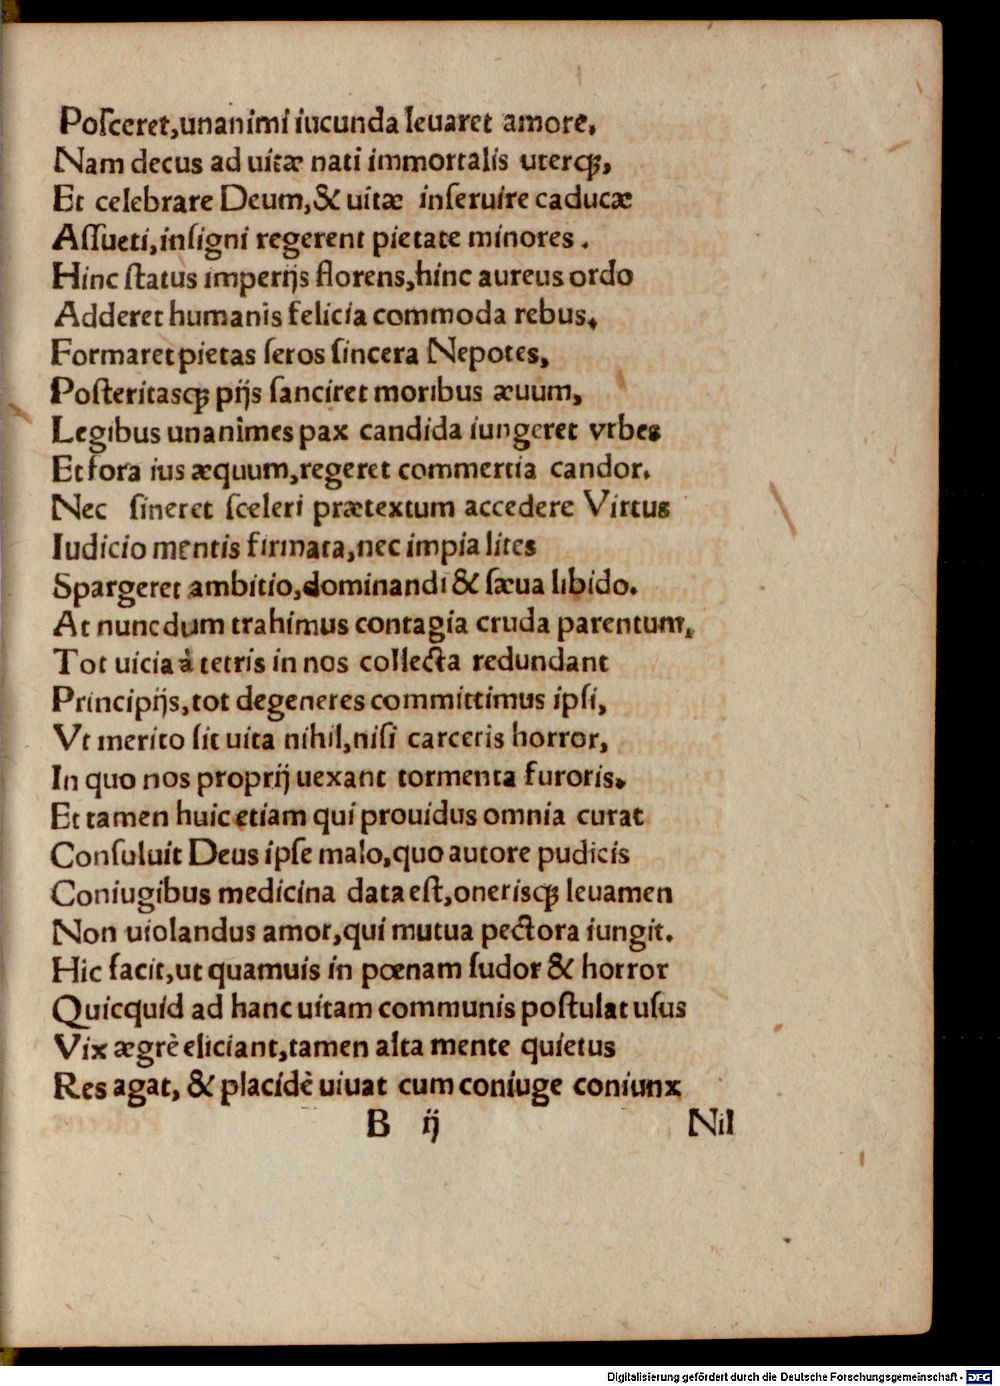 Poſceret,unanimi iucunda leuaret amore,
Nam decus ad uitæ nati immortalis uterq;,
Et celebrare Deum,& uitæ inſeruire caducæ
Aſſueti,inſigni regerent pietate minores.
Hinc ſtatus imperijs florens,hinc aureus ordo
Adderet humanis felicia commoda rebus,
Formaret pietas ſeros ſincera Nepotes,
Poſteritasq; pijs ſanciret moribus æuum,
Legibus unanimes pax candida iungeret vrbes
Et fora ius æquum,regeret commertia candor.
Nec ſineret ſceleri prætextum accedere Virtus
Iudicio mentis firmata,nec impia lites
Spargeret ambitio,dominandi & ſæua libido.
At nunc dum trahimus contagia cruda parentum,
Tot uicia à tetris in nos collecta redundant
Principijs,tot degeneres committimus ipſi,
Vt merito ſit uita nihil,niſi carceris horror,
In quo nos proprij uexant tormenta furoris.
Et tamen huic etiam qui prouidus omnia curat
Conſuluit Deus ipſe malo,quo autore pudicis
Coniugibus medicina data eſt,onerisq; leuamen
Non uiolandus amor,qui mutua pectora iungit.
Hic facit,ut quamuis in pœnam ſudor & horror
Quicquid ad hanc uitam communis poſtulat uſus
Vix ægrè eliciant,tamen alta mente quietus
Res agat, & placidè uiuat cum coniuge coniunx
B ij Nil
Digitalisierung gefördert durch die Deutsche Forschungsgemeinschaft - DFG